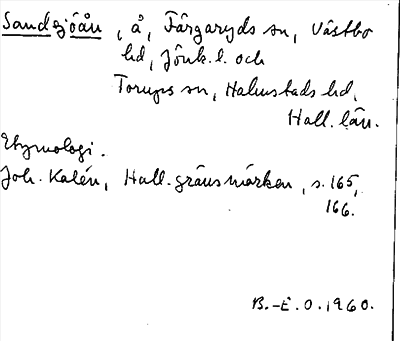 Sandsjöån, å, Färgaryds sn, Västbo
hd, Jönk. l. och
Torups sn, Halmstads hd,
Hall. län.
Etymologi.
Joh. Kalén, Hall. gränsmärken, s. 165,
166.
B.-E. O. 1960.